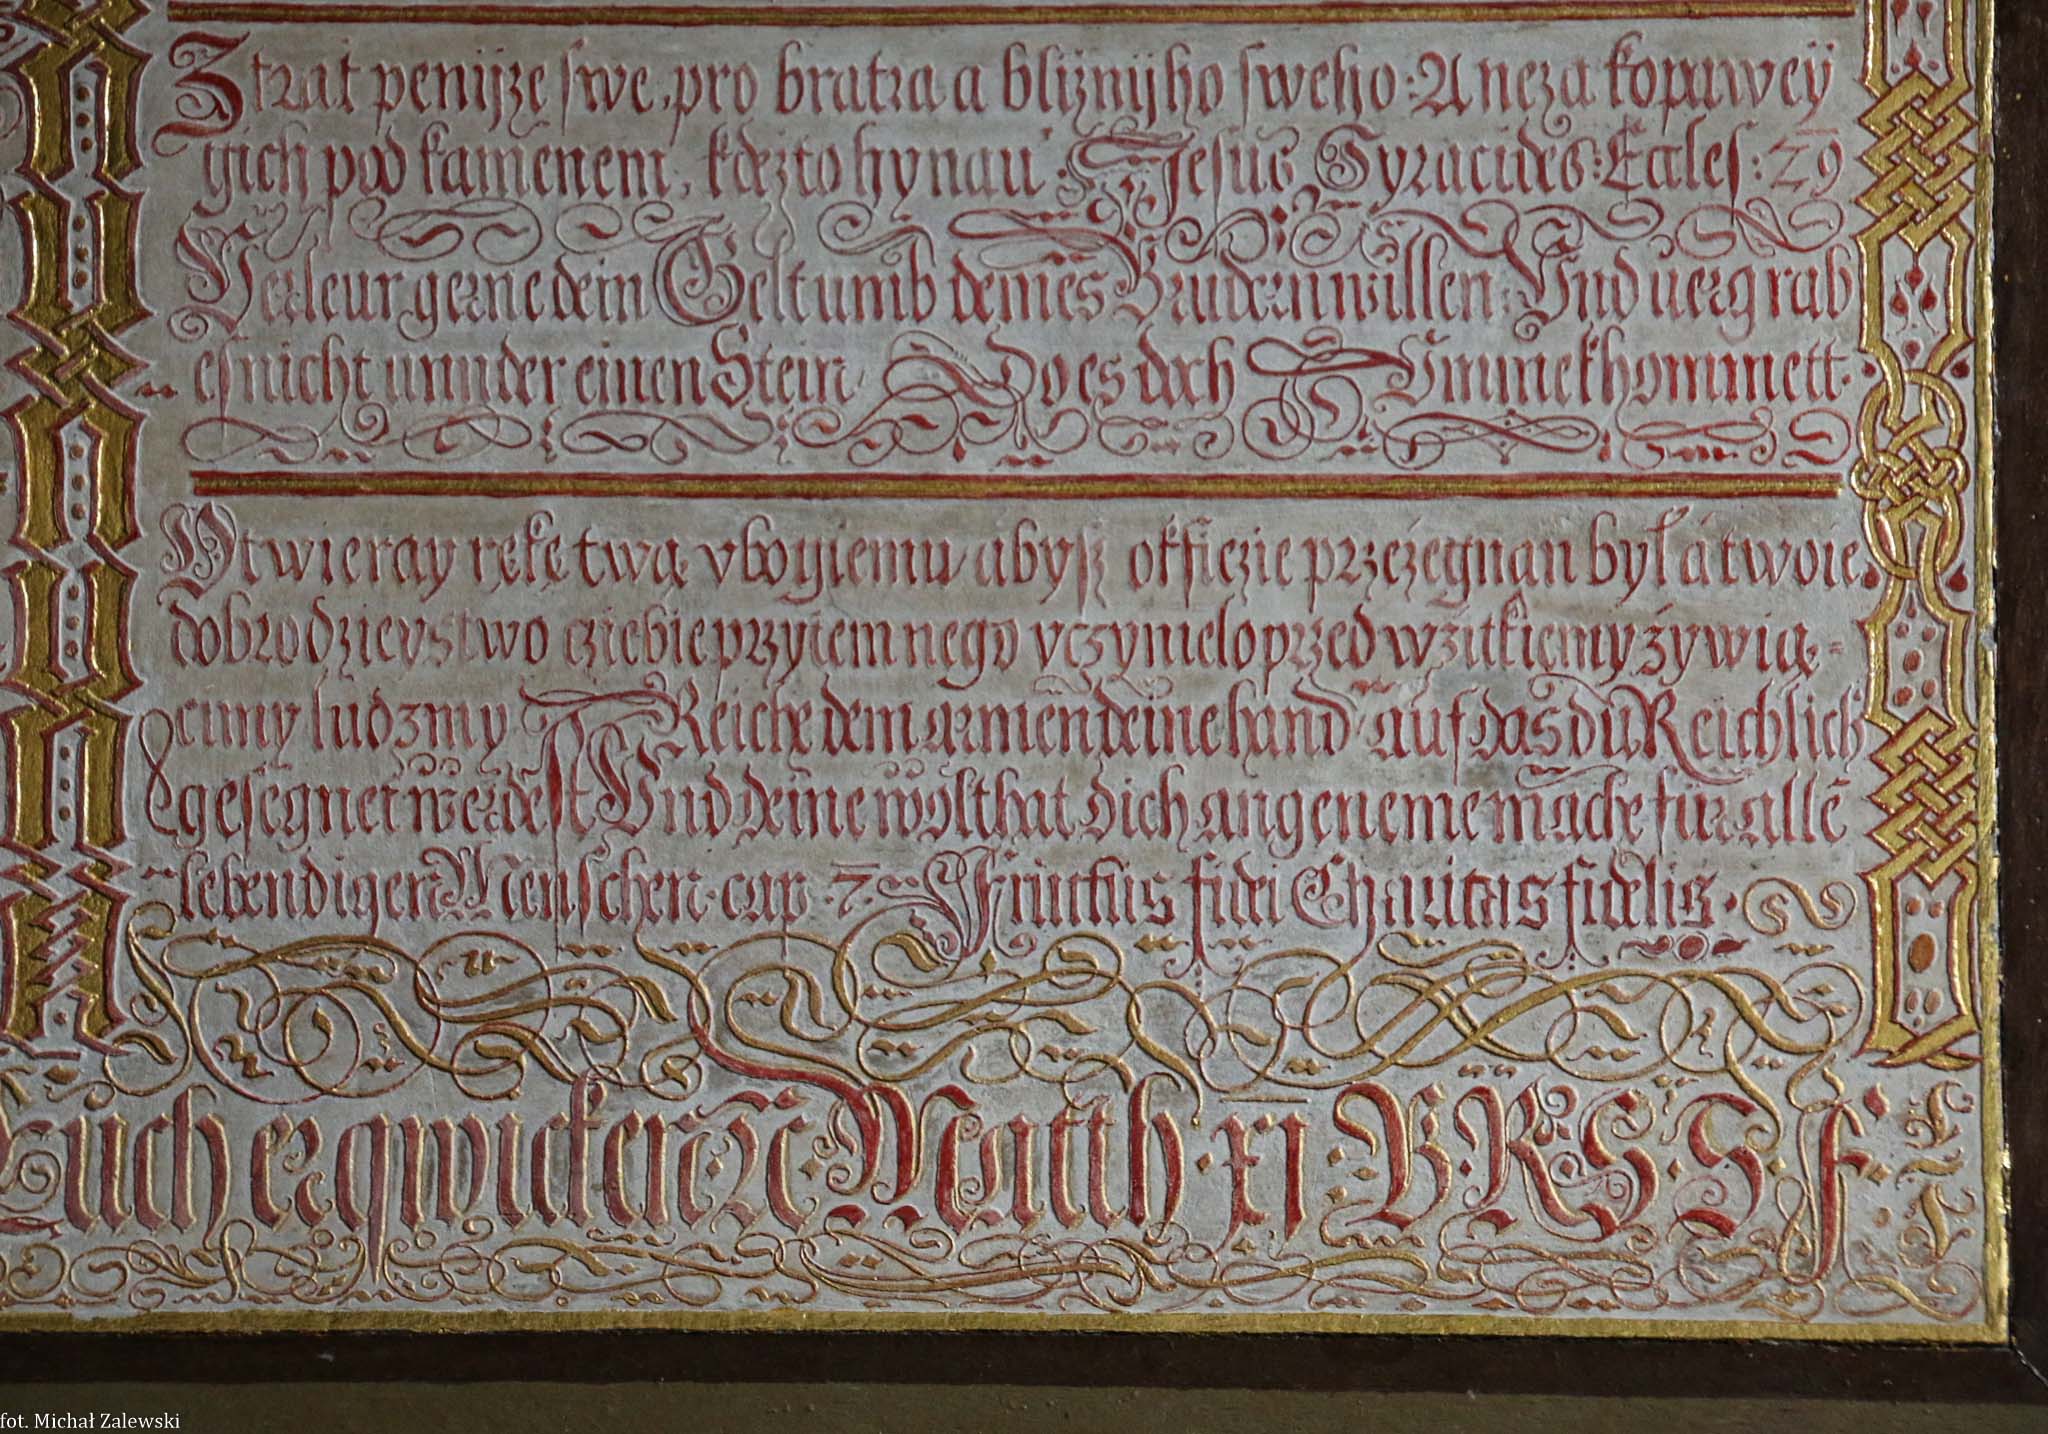 Ztrat penijze swe, pro bratra a bliznijho sweho: A neza kopawey
gich pod kamenem, kdezto hynau Jesus Syracides: Eccles: 29
Verleur gerne dein Gelt umb deines Brudern willen: Vnd uergrab
es nicht unnder einen Stein Do es doch Vmmekhommett.
Otwieray rękę twą vbogiemu abysz obficzie przeżegnan był á twoie
dobrodzieystwo cziebie przyiemnego vczynielo przed wżitkiemy żywią-
cimy ludzmy Reiche dem armen deine hand auf das du Reichlich
gesegnet werdest Vnd deine wolthat dich angeneme mache für allē
lebendigen Menschen. cap. 7 Fructus fidei Charitas fidelis.
Euch erqwicken. Matth. XI B. R. S. S. F.
fot. Michał Zalewski